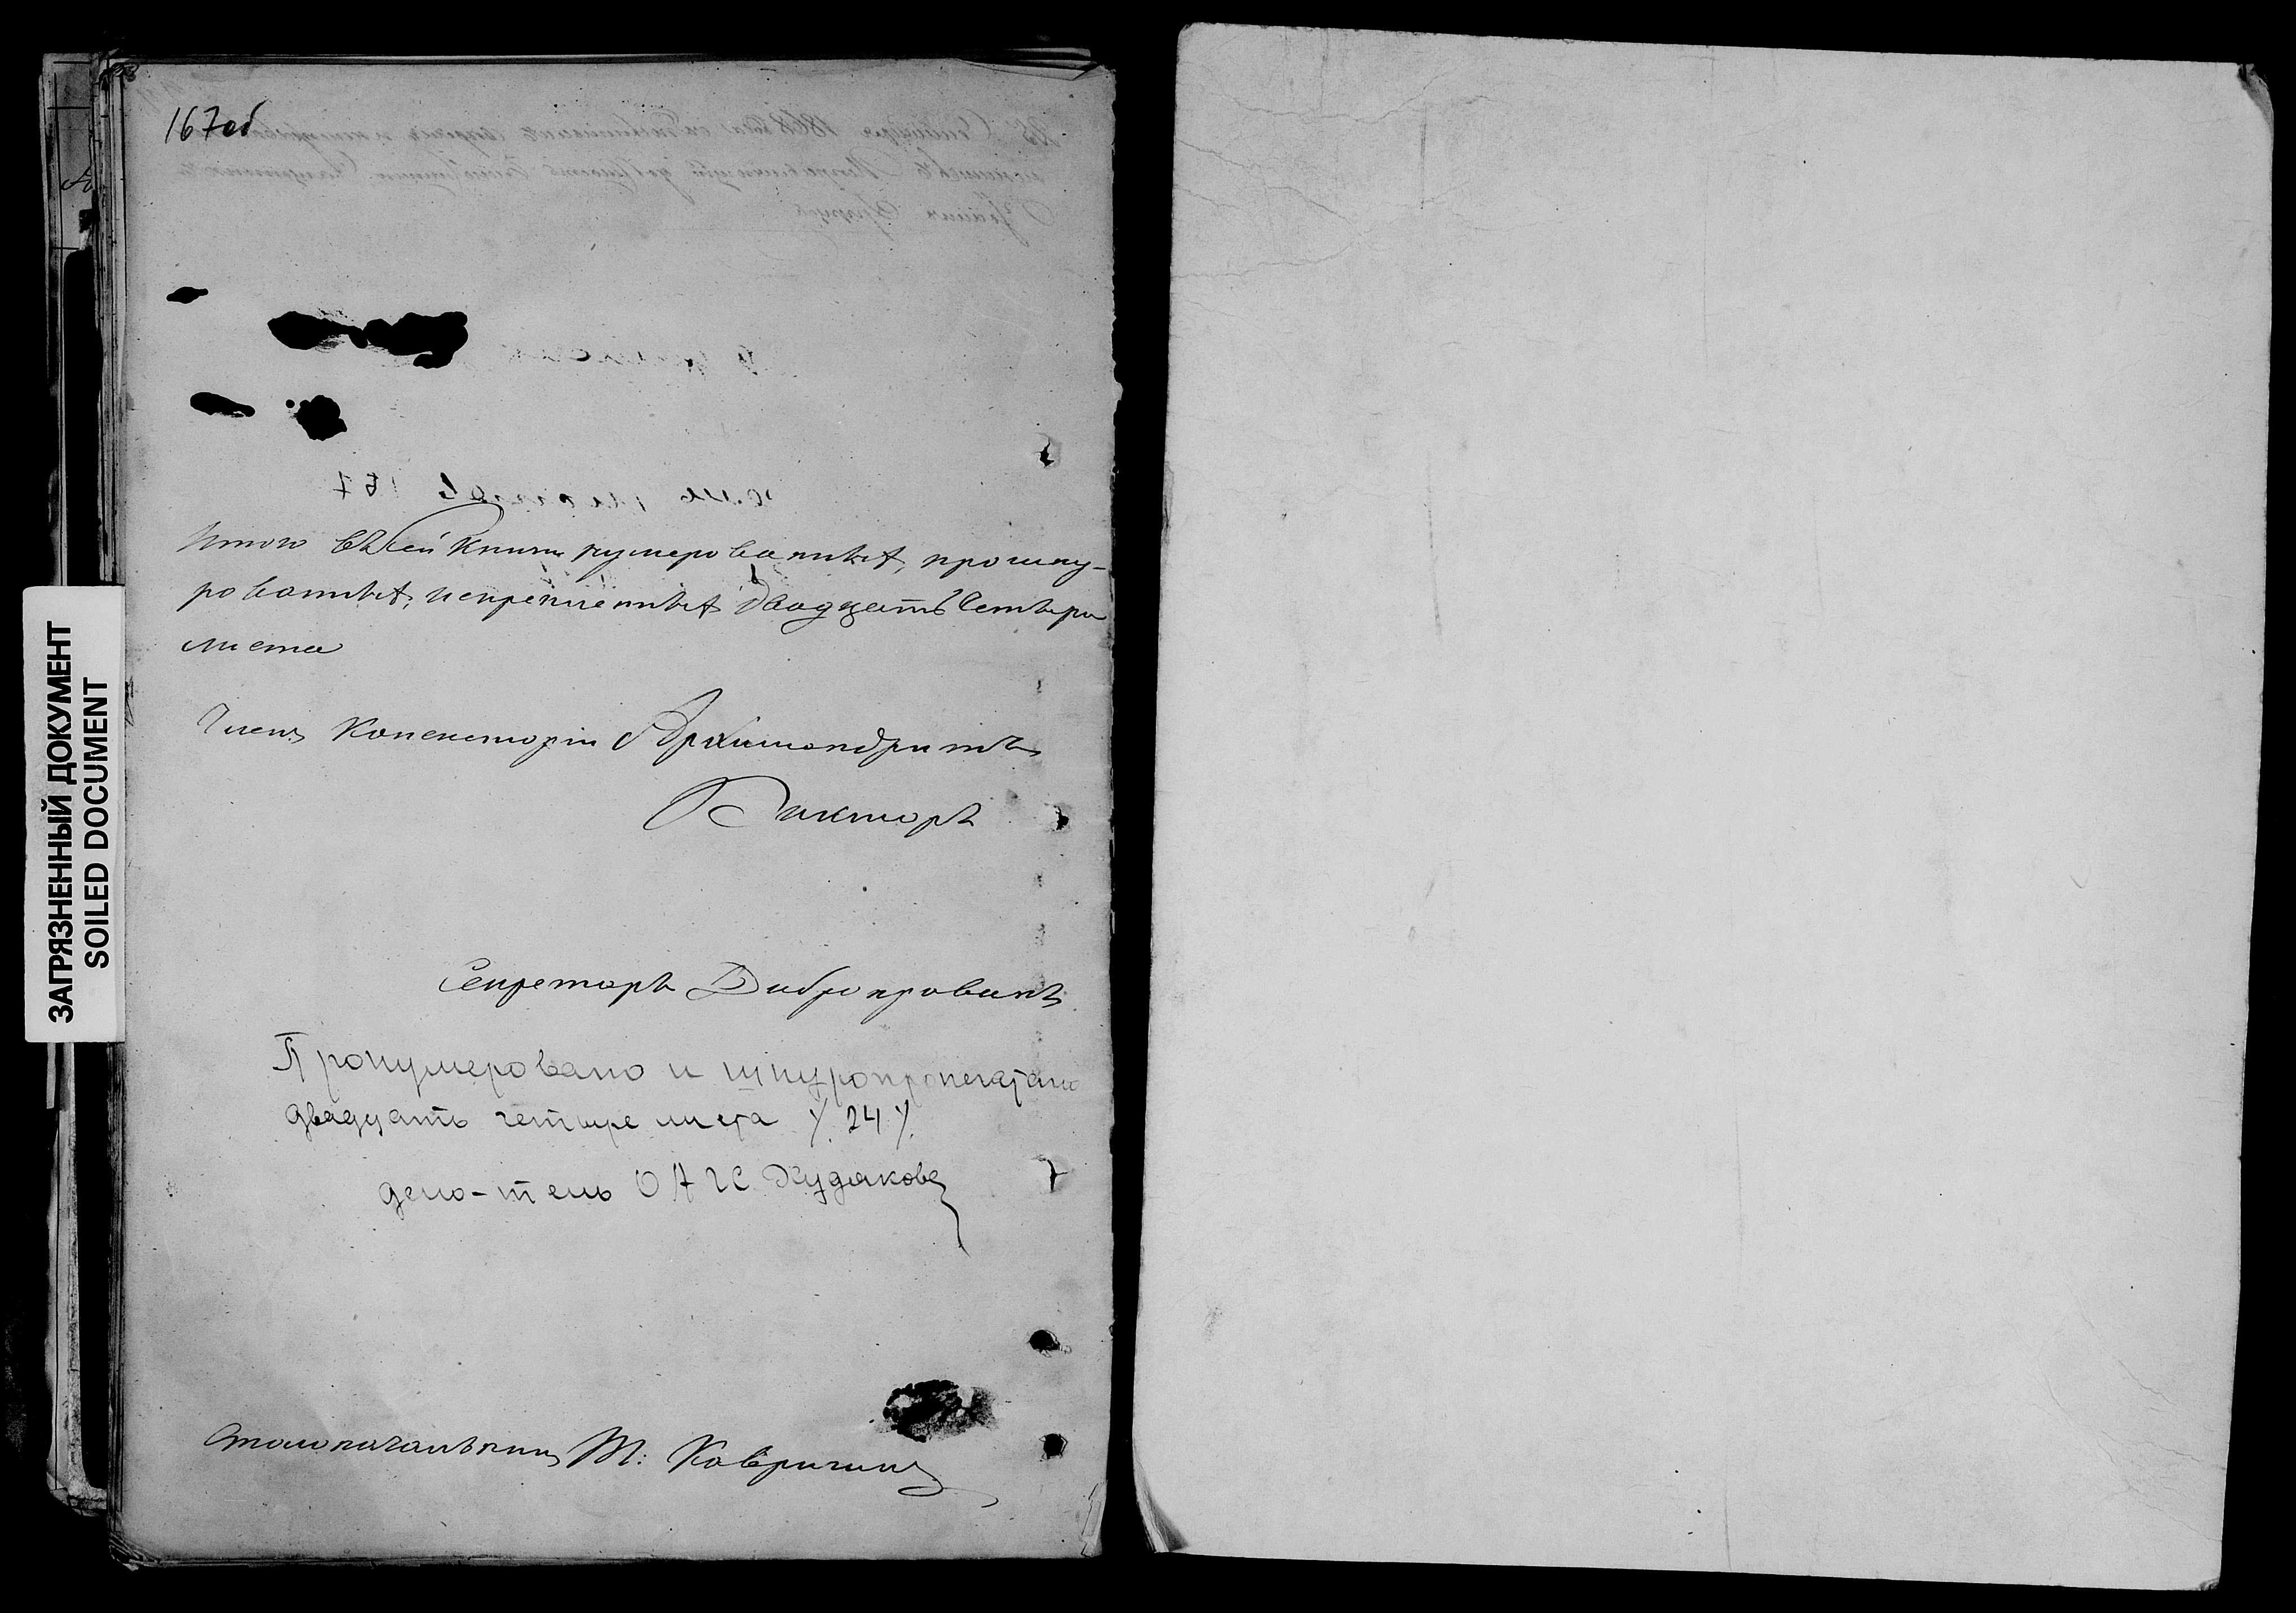 167об
Итого въ сей Книги нумерованныхъ, прошну-
рованныхъ, искрепленныхъ двадцать Четыре
листа
Членъ Консисторіи Архимандритъ
Викторъ
Секретарь Добронравинъ
Пронумеровано и шнуропропечатано
двадцать четыре листа %. 24 %.
дело-тель ОАГС Худякова
Столоначальникъ М: Ковригинъ
ЗАГРЯЗНЕННЫЙ ДОКУМЕНТ
SOILED DOCUMENT